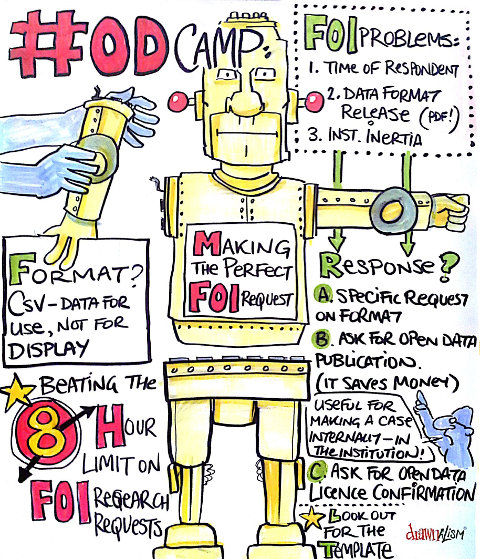 #OD CAMP:
FOI PROBLEMS:
1. TIME OF RESPONDENT
2. DATA FORMAT
RELEASE (PDF!)
3. INST. INERTIA
FORMAT?
CSV – DATA FOR
USE, NOT FOR
DISPLAY
MAKING
THE PERFECT
FOI REQUEST
RESPONSE?
A. SPECIFIC REQUEST
ON FORMAT
B. ASK FOR OPEN DATA
PUBLICATION.
(IT SAVES MONEY)
USEFUL FOR
MAKING A CASE
INTERNALLY – IN
THE INSTITUTION!
C. ASK FOR OPEN DATA
LICENCE CONFIRMATION
LOOK OUT
FOR THE
TEMPLATE
BEATING THE
8 HOUR
LIMIT ON
FOI RESEARCH
REQUESTS
drawnalism